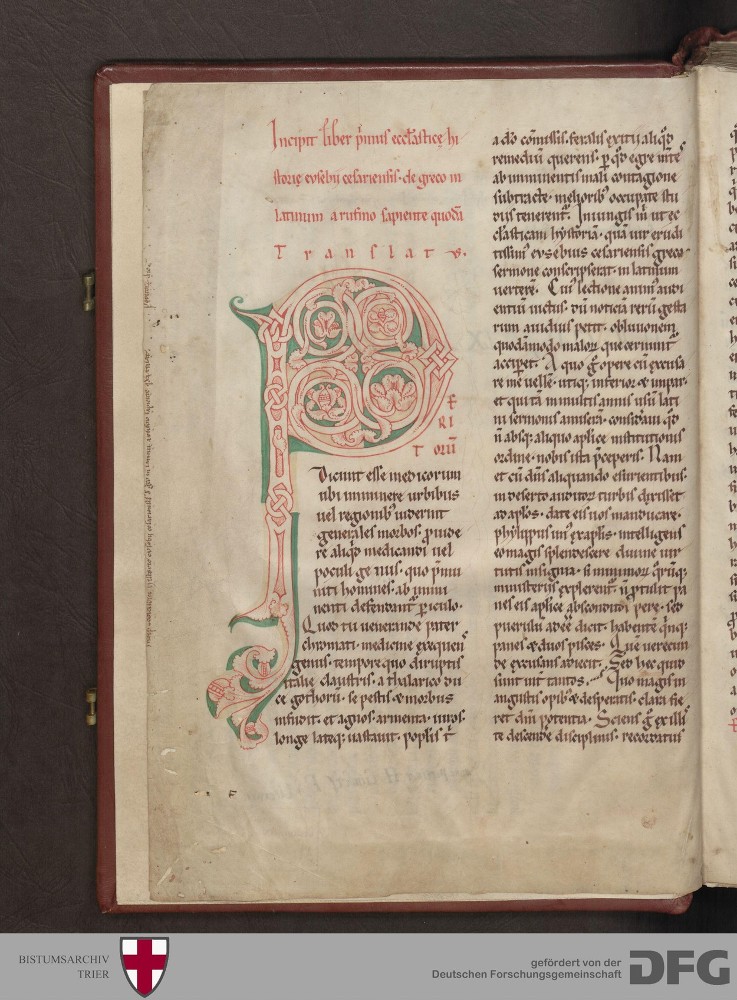 Incipit liber primus eccl'asticę hi
storię eusebii cesariensis· de greco in
latinum a rufino sapiente quodā
Translat⁹.
PERITORŪ
Dicunt esse medicorum
ubi imminere urbibus
uel regionib; uiderint
generales morbos· p̄uide
re aliqd̄ medicandi uel
poculi genus· quo p̄mu
niti homines· ab immi
nenti defendant̄ periculo·
Quod tu uenerande pater
chromati· medicine exequens
genus· tempore quo diruptis
italie claustris· a thalarico du
ce gothorū· se pestis & morbus
infudit· et agros· armenta· uiros·
longe lateq; uastauit· popl'is t̄
a do͞ cōmissis· feralis exitii aliqd̄
remediū querens· p̱ qd̄ egre m̄tes
ab imminentis mali contagione
subtracte· meliorib; occupate stu
diis tenerent̄· Iniungis m̄ ut ec
cl'asticam hystoriā· quā uir erudi
tissim⁹ eusebius cesariensis greco
sermone conscripserat· in latinum
uerterē· Cui⁹ lectione anim⁹ audi
entiū uictus· dū noticiā rerū gesta
rum auidius petit· obliuionem
quodāmodo malorū que cerunt̄
acciperet· A quo g̊ opere cū excusa
re me uellē· utiq; inferior & impar·
et qui tā in multis annis usū lati
ni sermonis amiserā· considaui qd̄
n̄ absq; aliquo aplice institutionis
ordine· nobis ista p̄ceperis· Nam
et cū dn̄s aliquando esurientibus·
in deserto auditorū turbis dixisset
ad aplos· date eis uos manducare·
phylippus un⁹ ex aplis· intelligens
eo magis splendescere diuine uir
tutis insignia· si minimorū q̄rūq;
ministeriis explerent̄· n̄ protulit pa
nes eis aplice absconditos pere· sed
puerulū adeē dicit· habentē quinq;
panes & duos pisces· Quē uerecun
de excusans adiecit· Sed hec quid
sunt int̄ tantos· Quo magis in
angustis opib; & desperatis· clara fie
ret diui͞ potentia· Sciens g̊ ex illi⁹
te descende disciplinis· recordatus
BISTUMSARCHIV
TRIER
gefördert von der
Deutschen Forschungsgemeinschaft
DFG